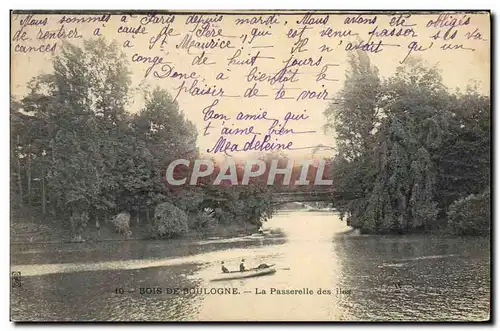 Nous sommes à Paris depuis mardi, Nous avons été obligés
de rentrer à cause de père, qui est venu passer ses va
cances à St Maurice, il n'avait qu'un
congé de huit jours.
Donc, à bientôt le
plaisir de te voir
Ton amie qui
t'aime bien
Madeleine
CARTOPHILIE
10 - BOIS DE BOULOGNE. - La Passerelle des îles